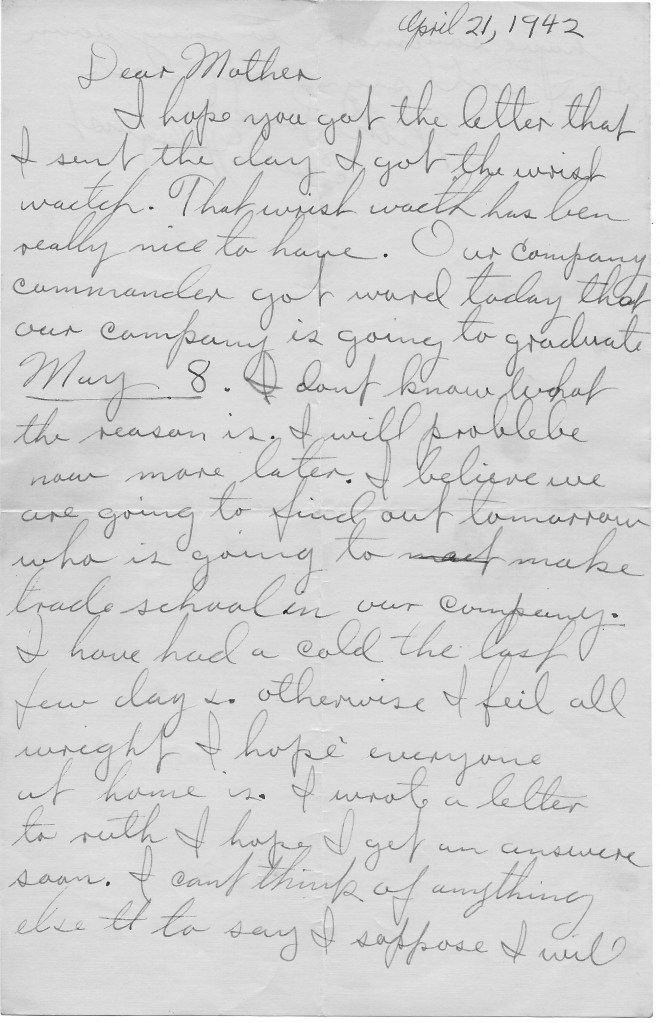 April 21, 1942
Dear Mother
I hope you got the letter that
I sent the day I got the wrist
wactch. That wrist wacth has ben
really nice to have. Our company
cummander got word today that
our company is going to graduate
May 8. I dont know what
the reason is. I will problebe
now more later. I believe we
are going to find out tomorrow
who is going to mact make
trade school in our company.
I have had a cold the last
few days. otherwise I feil all
wright I hope everyone
at home is. I wrote a letter
to ruth I hope I get an answere
soon. I cant think of anything
else tt to say I soppose I will